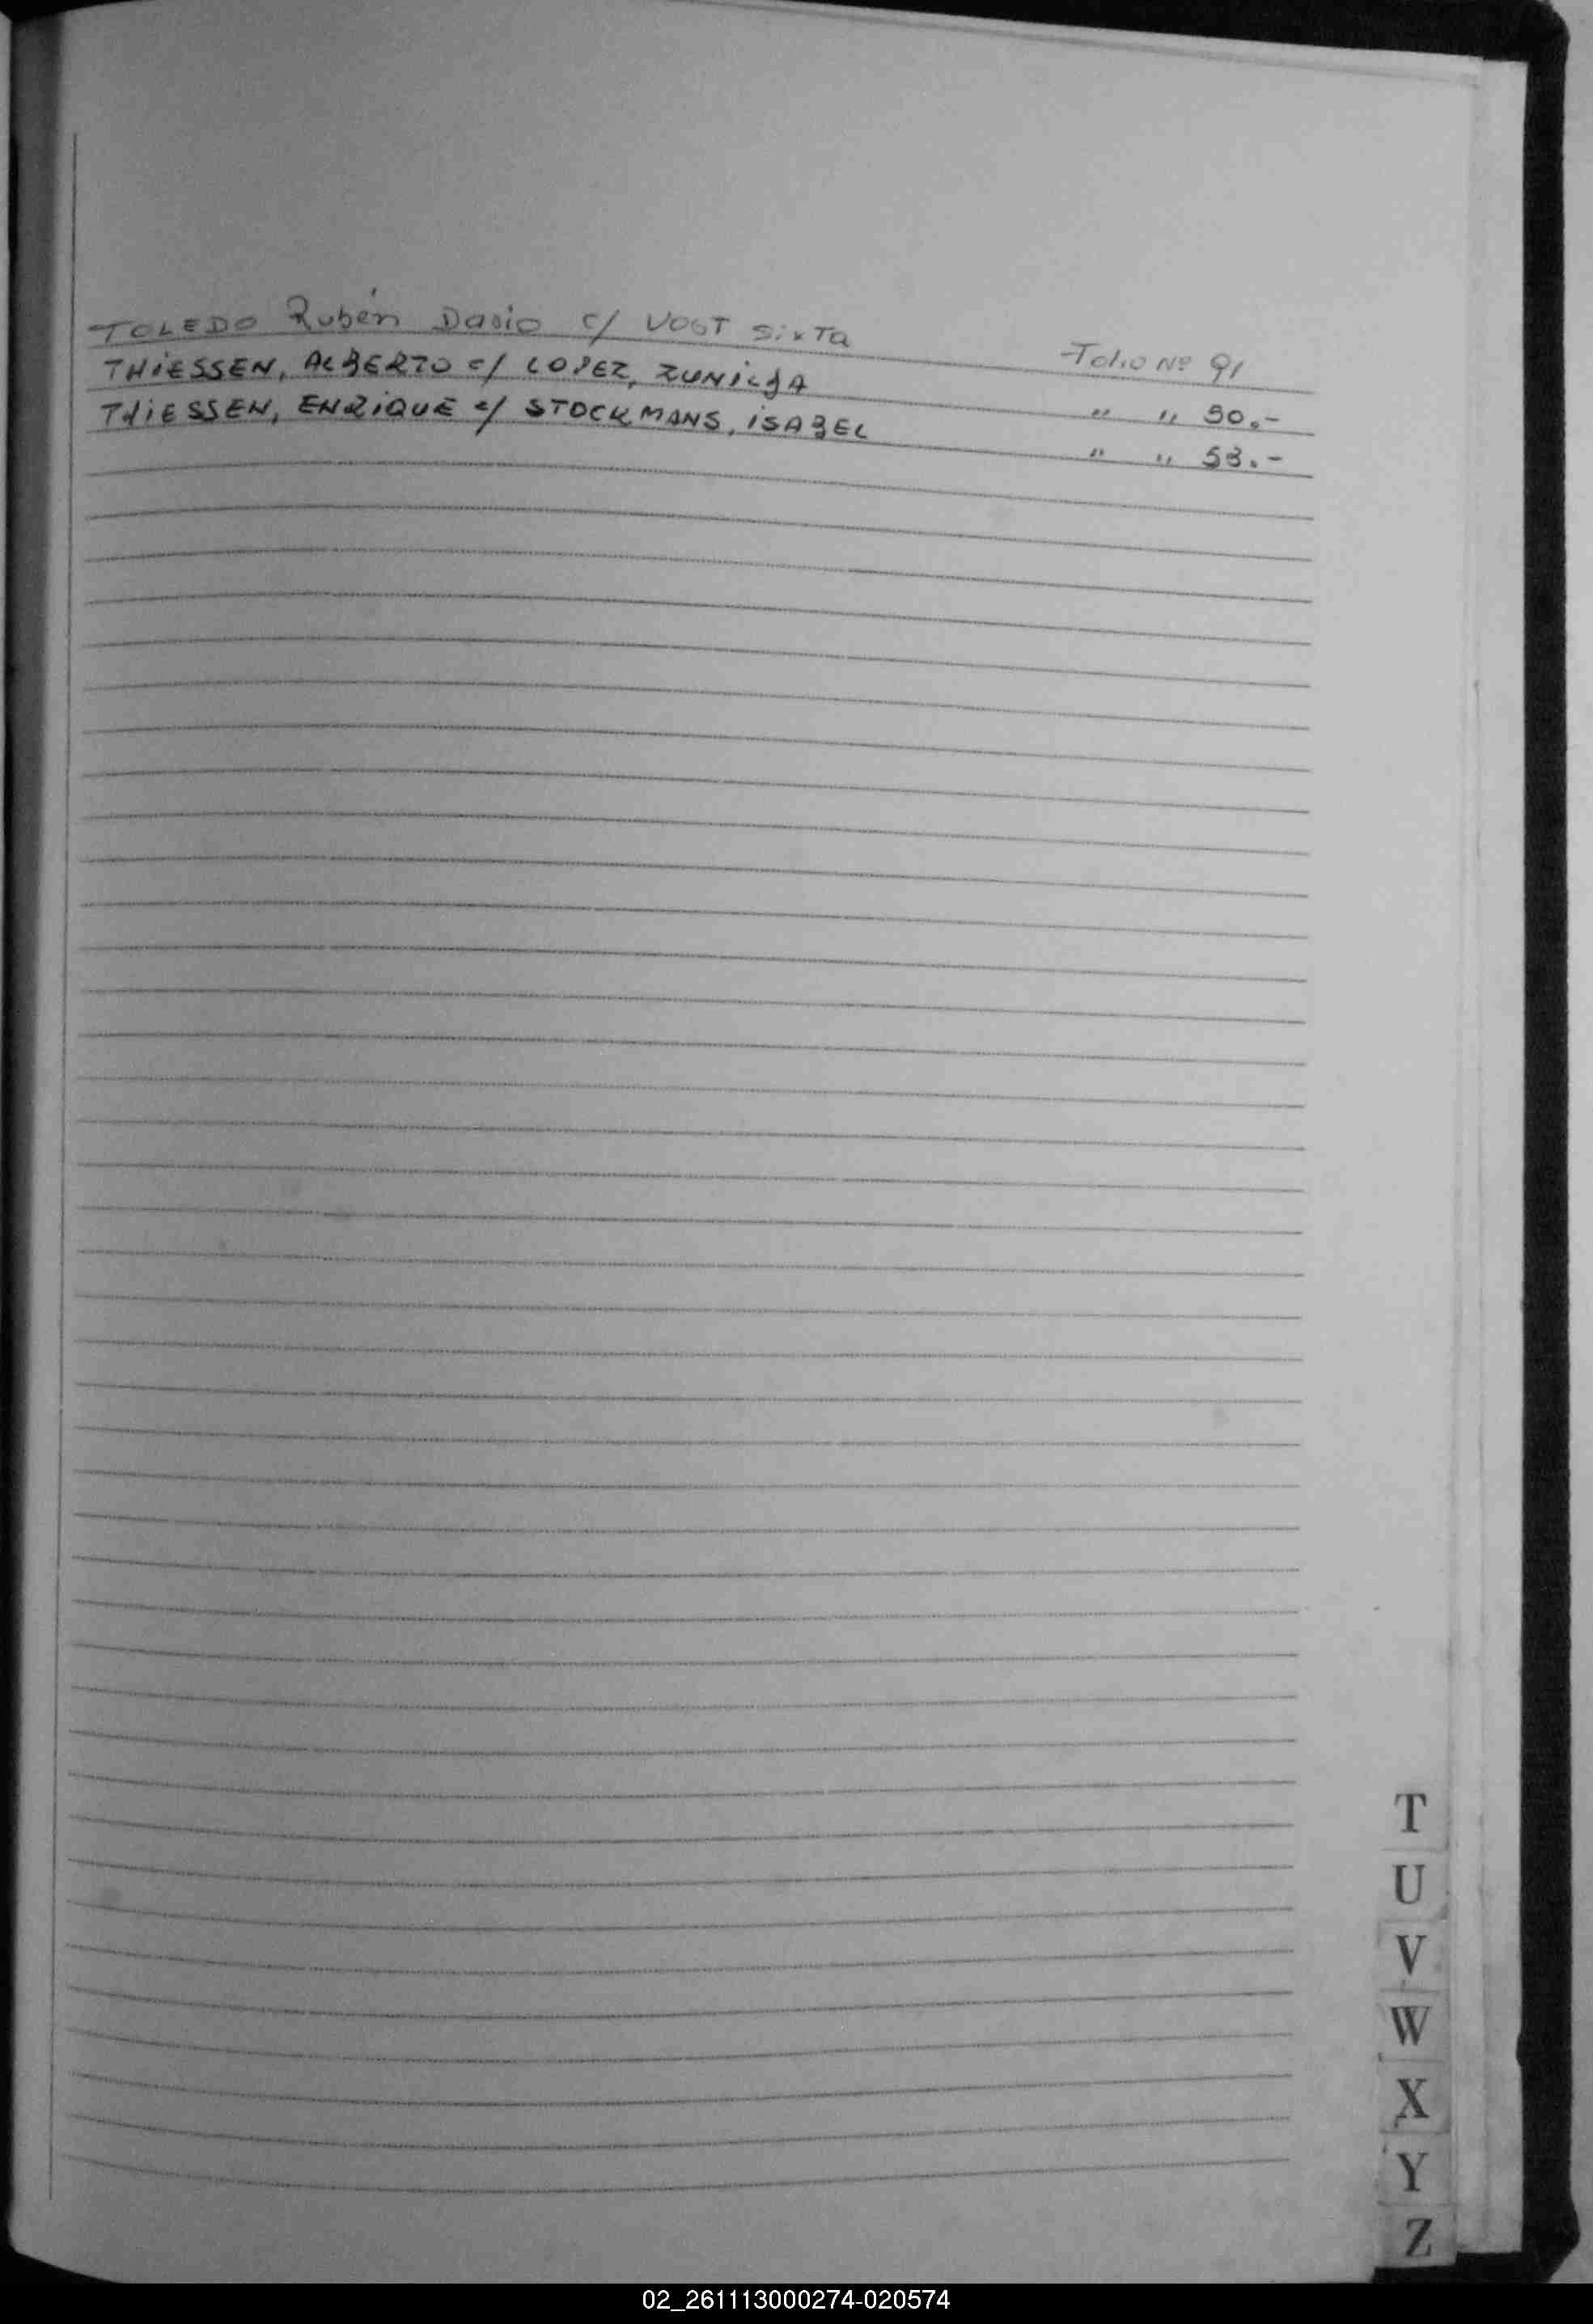 TOLEDO Rubén Dario c/ VOGT Sixta Folio Nº 91
THiESSEN, ALBERTO c/ LOPEZ, ZUNiLdA " " 50.-
THiESSEN, ENRiQUE c/ STOCKMANS, iSABEL " " 53.-
T
U
V
W
X
Y
Z
02_261113000274-020574